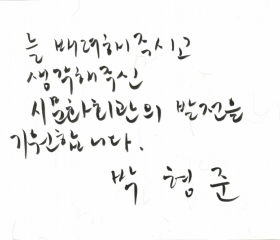 늘 배려해주시고
생각해주신
시문화회관의 발전을
기원합니다.
박 형 준